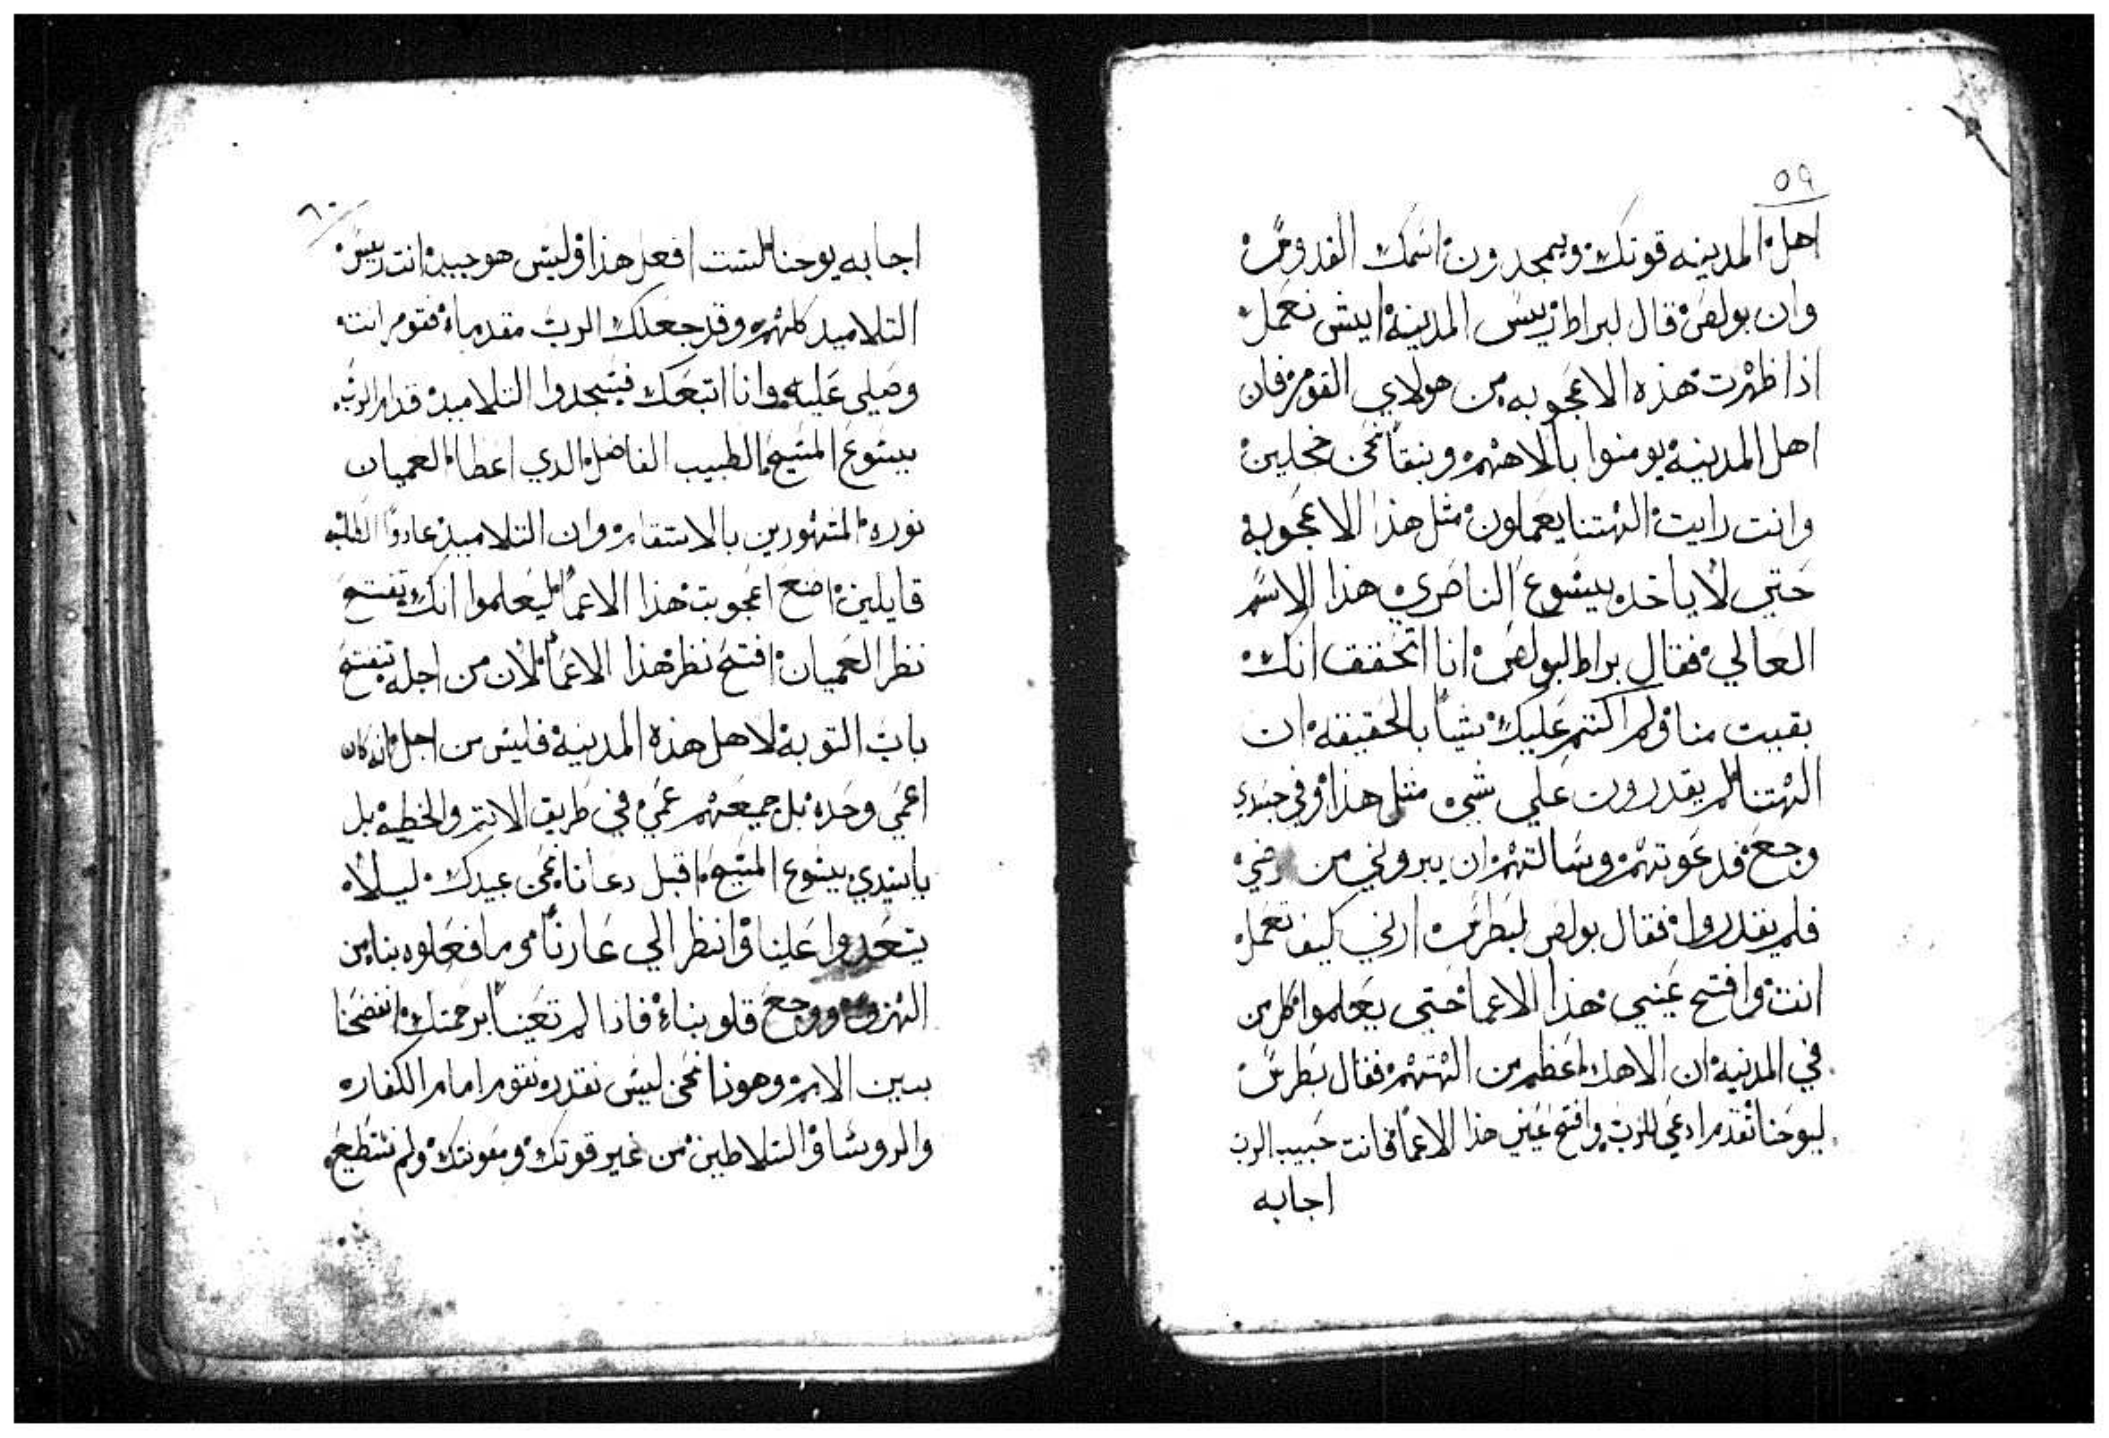 ٥٩
اهل المدينه قوتك ويمجدون اسمك القدوس
وان بولص قال لبراط ريس المدينة ايش نعمل
اذا ظهرت هذه الاعجوبه من هولاي القوم فان
اهل المدينة يومنوا بالاههم وبنقا نحن خجلين
وانت رايت الهتنا يعملون مثل هذا الاعجوبه
حتي لا ياخد يسوع الناصري هذا الاسم
العالي فقال براط لبولص انا اتحقق انك
بقيت منا ولم اكتم عليك شيا بالحقيقه ان
الهتنا لم يقدرون علي شي مثل هذا وفي جسدي
وجع قد عوتهم وسالتهم ان يبروني من
فلم يقدروا فقال بولص لبطرس ارني كيف تعمل
انت وافتح عيني هذا الاعما حتي يعلموا كل من
في المدنية ان الاهك اعظم من الهتهم فقال بطرس
ليوحنا تقدم ادعي للرب وافتح عيني هذا الاعما فانت حبيب الرب
اجابه
٦٠
اجابه يوحنا لست افعل هذا وليس هو جيد انت ريس
التلاميد كلهم وقد جعلك الرب مقدماء فقوم انت
وصلي عليه وانا اتبعك فسجدوا التلاميد قدام الرب
يسوع المسيح الطبيب الفاضل الدي اعطا العميان
نوره المشهورين بالاستقامه وان التلاميد عادوا الطلبه
قايلين اضع اعجوبت هذا الاعما ليعلموا انك تفتح
نظر العميان افتح نظر هذا الاعما لان من اجله تنفتح
باب التوبة لاهل هذه المدينة فليس من اجل انه كان
اعمي وحده بل جميعهم عمي في طريق الاتم والخطيه بل
ياسيدي يسوع المسيح اقبل دعانا نحن عبيدك ليلا
يتعدوا علينا وانظر الي عارنا وما فعلوه بنا من
الهزو ووجع قلوبناء فاذا لم تعنا برحمتك انفضحنا
بين الامم وهوذا نحن ليس نقدر نقوم امام الكفاره
والروسا والسلاطين من غير قوتك ومعونتك ولم نستطيع